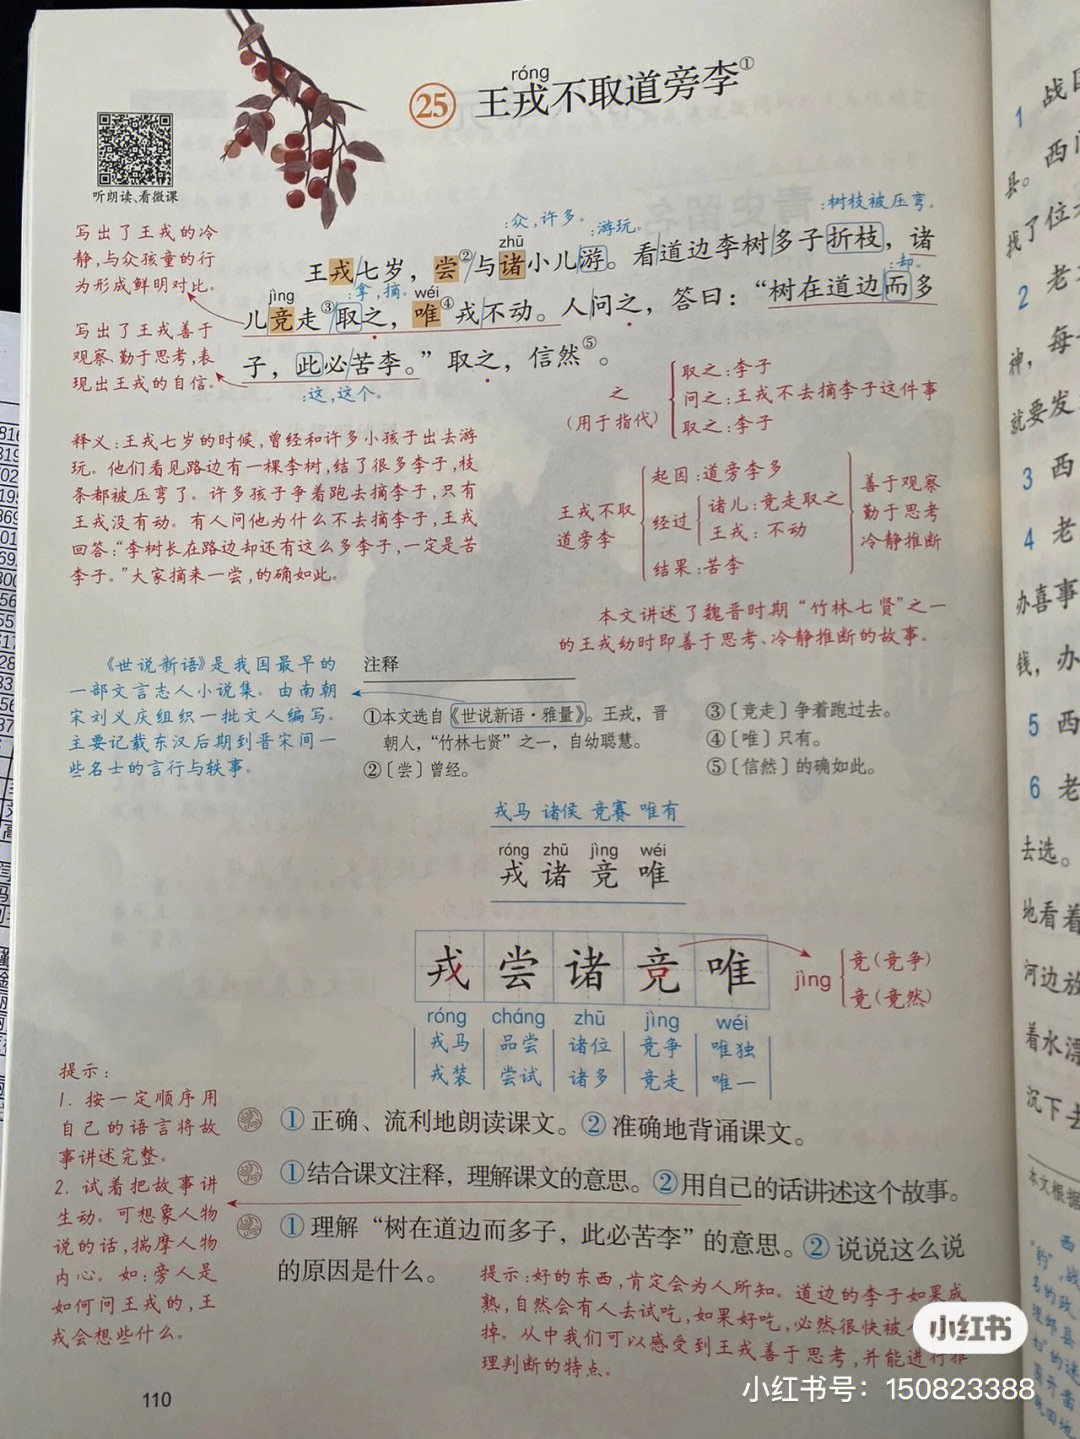 róng
25 王戎不取道旁李①
听朗读、看微课
:众,许多。 :游玩。 :树枝被压弯。
写出了王戎的冷
静,与众孩童的行
为形成鲜明对比。
zhū
王戎七岁,尝②与诸小儿游。看道边李树多子折枝,诸
:拿,摘。 :却。
jìng wéi
儿竞走③取之,唯④戎不动。人问之,答曰:“树在道边而多
子,此必苦李。”取之,信然⑤。
:这,这个。
写出了王戎善于
观察 勤于思考,表
现出王戎的自信。
之
(用于指代)
取之:李子
问之:王戎不去摘李子这件事
取之:李子
释义:王戎七岁的时候,曾经和许多小孩子出去游
玩。他们看见路边有一棵李树,结了很多李子,枝
条都被压弯了。许多孩子争着跑去摘李子,只有
王戎没有动。有人问他为什么不去摘李子,王戎
回答:“李树长在路边却还有这么多李子,一定是苦
李子。”大家摘来一尝,的确如此。
王戎不取
道旁李
起因:道旁李多
经过
诸儿:竞走取之
王戎:不动
结果:苦李
善于观察
勤于思考
冷静推断
本文讲述了魏晋时期“竹林七贤”之一
的王戎幼时即善于思考、冷静推断的故事。
《世说新语》是我国最早的
一部文言志人小说集。由南朝
宋刘义庆组织一批文人编写。
主要记载东汉后期到晋宋间一
些名士的言行与轶事。
注释
①本文选自《世说新语·雅量》。王戎,晋
朝人,“竹林七贤”之一,自幼聪慧。
②〔尝〕曾经。
③〔竞走〕争着跑过去。
④〔唯〕只有。
⑤〔信然〕的确如此。
戎马 诸侯 竞赛 唯有
róng zhū jìng wéi
戎 诸 竞 唯
戎 尝 诸 竞 唯
róng cháng zhū jìng wéi
戎马 品尝 诸位 竞争 唯独
戎装 尝试 诸多 竞走 唯一
jìng
竞(竞争)
竟(竟然)
提示:
1. 按一定顺序用
自己的语言将故
事讲述完整。
2. 试着把故事讲
生动。可想象人物
说的话,揣摩人物
内心。如:旁人是
如何问王戎的,王
戎会想些什么。
①正确、流利地朗读课文。②准确地背诵课文。
①结合课文注释,理解课文的意思。②用自己的话讲述这个故事。
①理解“树在道边而多子,此必苦李”的意思。②说说这么说
的原因是什么。
提示:好的东西,肯定会为人所知。道边的李子如果成
熟,自然会有人去试吃,如果好吃,必然很快被
掉。从中我们可以感受到王戎善于思考,并能进行推
理判断的特点。
110
1 战国
西
县。
找了位
2 老
神,每
就要发
3 西
4 老
办喜事
钱,办
5 西
6 老
去选。
地看着
河边放
着水漂
沉下去
本文根据
小红书
小红书号:150823388